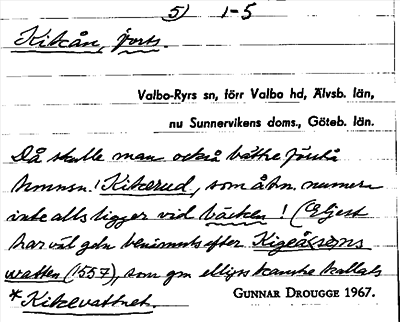 5) 1-5
Kikån, forts.
Valbo-Ryrs sn, förr Valbo hd, Älvsb. län,
nu Sunnervikens doms., Göteb. län.
Då skulle man också bättre förstå
hmnsn. ! Kikerud, som åtm. numera
inte alls ligger vid bäcken ! (Eljest
har väl gdn benämnts efter Kigeåssens
watten (1557), som gm ellips kanske kallats
*Kikevattnet.
GUNNAR DROUGGE 1967.